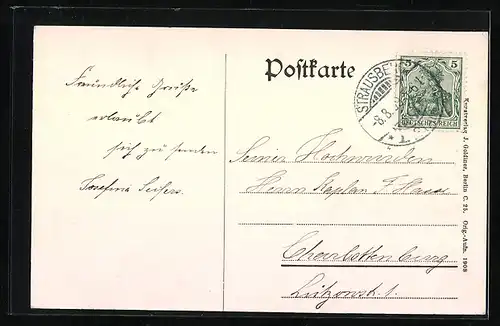 Postkarte
STRAUSBE
-8.8.
5 5
DEUTSCHES REICH
Freundliche Grüsse
erlaubt
sich zu senden
Josefine
Seiner Hochwürden
Herrn Kaplan F.
Charlottenburg
Lützowstr. 1.
Kunstverlag J. Goldiner, Berlin C. 25. Orig.-Aufn. 1908